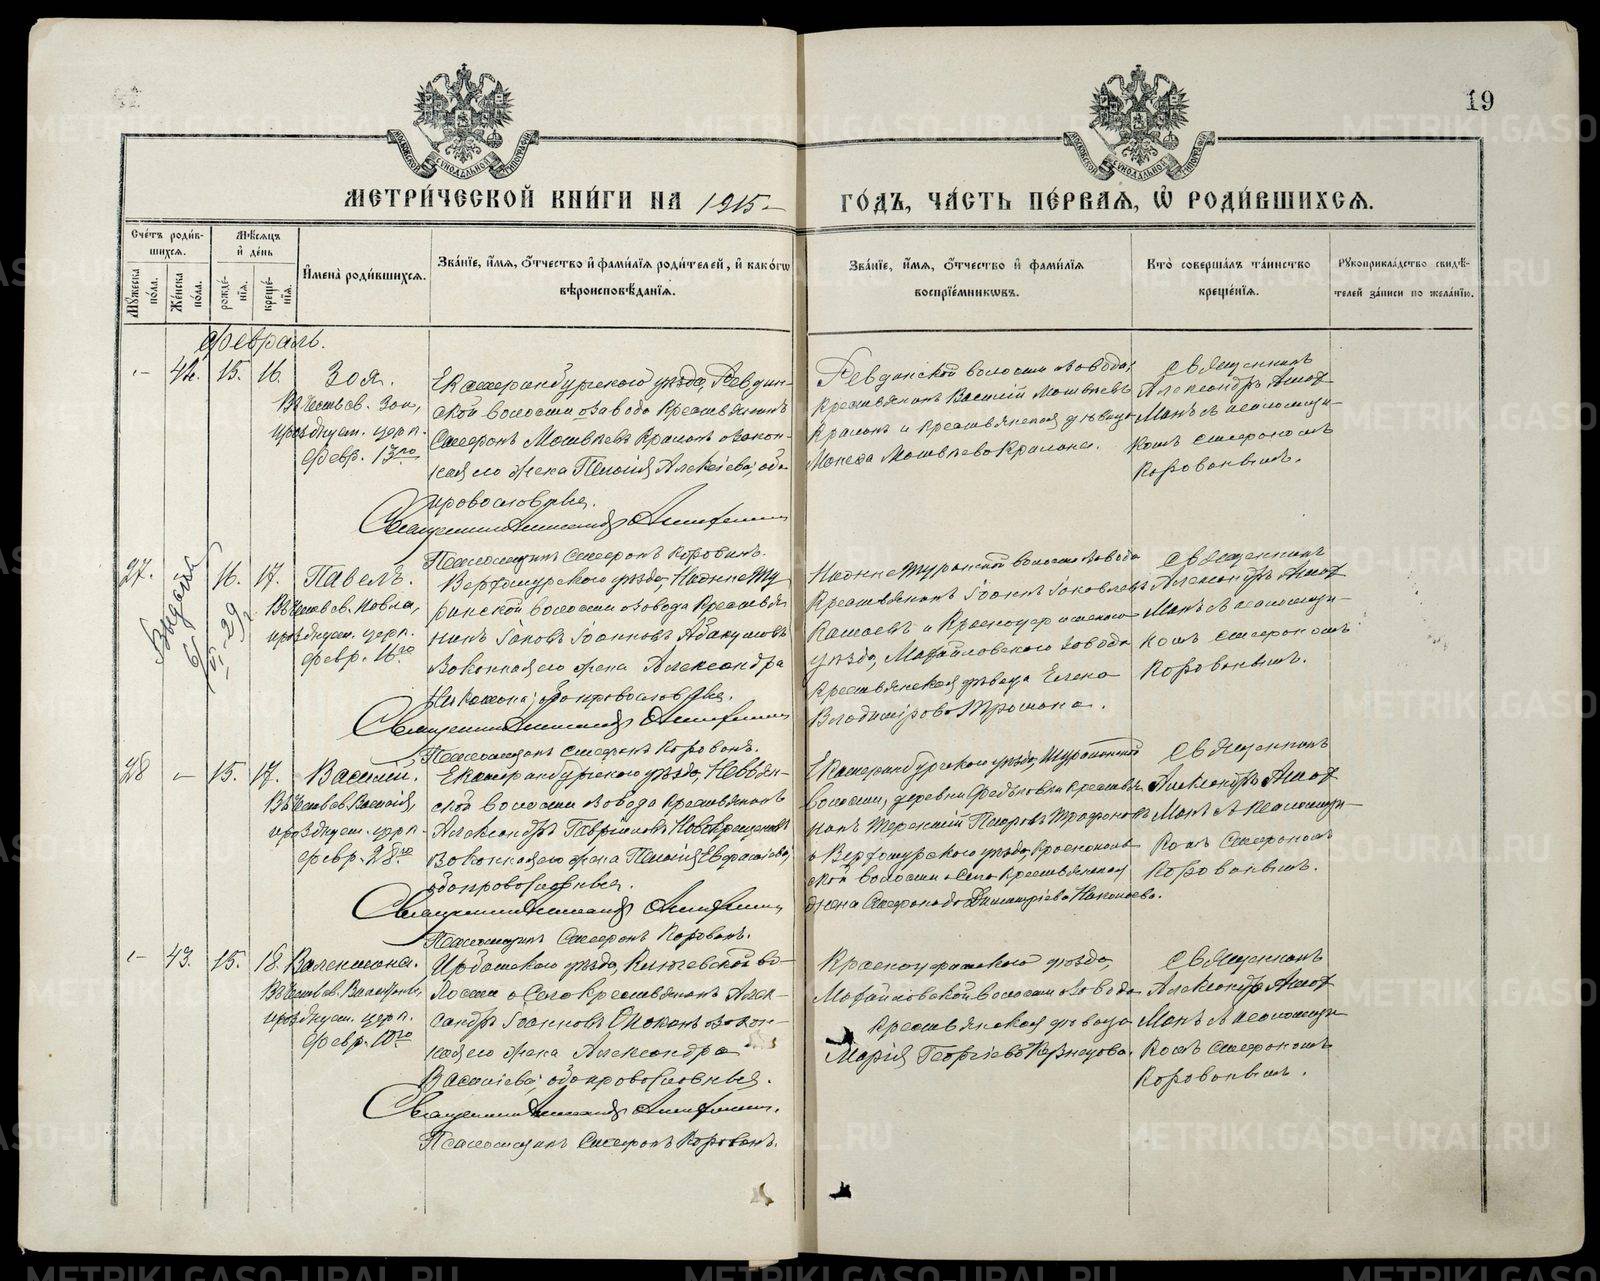 19
МЕТРИ́ЧЕСКОЙ КНИ́ГИ НА 1915
ГО́ДЪ, ЧА́СТЬ ПЕ́РВАЯ, Ѡ҆ РОДИ́ВШИХСЯ.
Сче́тъ роди́в-
шихся.
Мѣ́сяцъ
и҆ де́нь
Му́жеска
по́ла.
Же́нска
по́ла.
рожде́-
нїя.
креще́-
нїя.
И҆мена̀ роди́вшихся.
Зва́нїе, и҆́мя, ѻ҆́тчество и҆ фами́лїя роди́телей, и҆ како́гѡ
вѣроисповѣ́данїя.
Зва́нїе, и҆́мя, ѻ҆́тчество и҆ фами́лїя
воспрїе́мникѡвъ.
Кто̀ соверша́лъ та́инство
креще́нїя.
Рꙋкоприкла́дство свидѣ́-
телей за́писи по жела́нїю.
Февраль.
42. 15. 16. Зоя.
Въ честь св. Зои,
празднуем. церк.
Февр. 13го
Екатеринбургскаго уѣзда, Ревдин-
ской волости и завода крестьянинъ
Стефанъ Матвѣевъ и закон-
ная его жена Пелагія Алексѣева; оба
православные.
Священникъ Александръ
Псаломщикъ Стефанъ Коровинъ.
Ревдинской волости и завода,
крестьянинъ Василій Матвѣевъ
и крестьянская дѣвица
Матвѣева
Священникъ
Александръ
съ псаломщи-
комъ Стефаномъ
Коровинымъ.
27. 16. 17. Павелъ.
Въ честь св. Павла,
празднуем. церк.
Февр. 16го
Выдана
Верхотурскаго уѣзда, Нижне-Ту-
ринской волости и завода крестья-
нинъ Іаковъ Іоанновъ Абакумовъ
и законная его жена Александра
оба православные.
Священникъ Александръ
Псаломщикъ Стефанъ Коровинъ.
Нижне-Туринской волости и завода
крестьянинъ Іоаннъ Іаковлевъ
и Красноуфимскаго
уѣзда, Михайловскаго завода
крестьянская дѣвица Елена
Владимірова
Священникъ
Александръ
съ псаломщи-
комъ Стефаномъ
Коровинымъ.
28 15. 17. Василій.
Въ честь св. Василія,
празднуем. церк.
Февр. 28го
Екатеринбургскаго уѣзда, Невьян-
ской волости и завода крестьянинъ
Александръ Гавріиловъ Новокрещеновъ
и законная его жена Пелагія
оба православные.
Священникъ Александръ
Псаломщикъ Стефанъ Коровинъ.
Екатеринбургскаго уѣзда,
волости, деревни крестья-
нинъ Терентій Петровъ Трифоновъ
и Верхотурскаго уѣзда,
ской волости и села крестьянская
жена Стефанида Димитріева
Священникъ
Александръ
съ псаломщи-
комъ Стефаномъ
Коровинымъ.
43. 15. 18. Валентина.
Въ честь св. Валентины,
празднуем. церк.
Февр. 10го
Ирбитскаго уѣзда, Ключевской во-
лости и села крестьянинъ Алек-
сандръ Іоанновъ и закон-
ная его жена Александра
Васильева; оба православные.
Священникъ Александръ
Псаломщикъ Стефанъ Коровинъ.
Красноуфимскаго уѣзда,
Михайловской волости и завода
крестьянская дѣвица
Марія Георгіева Кузнецова.
Священникъ
Александръ
съ псаломщи-
комъ Стефаномъ
Коровинымъ.
METRIKI.GASO-URAL.RU